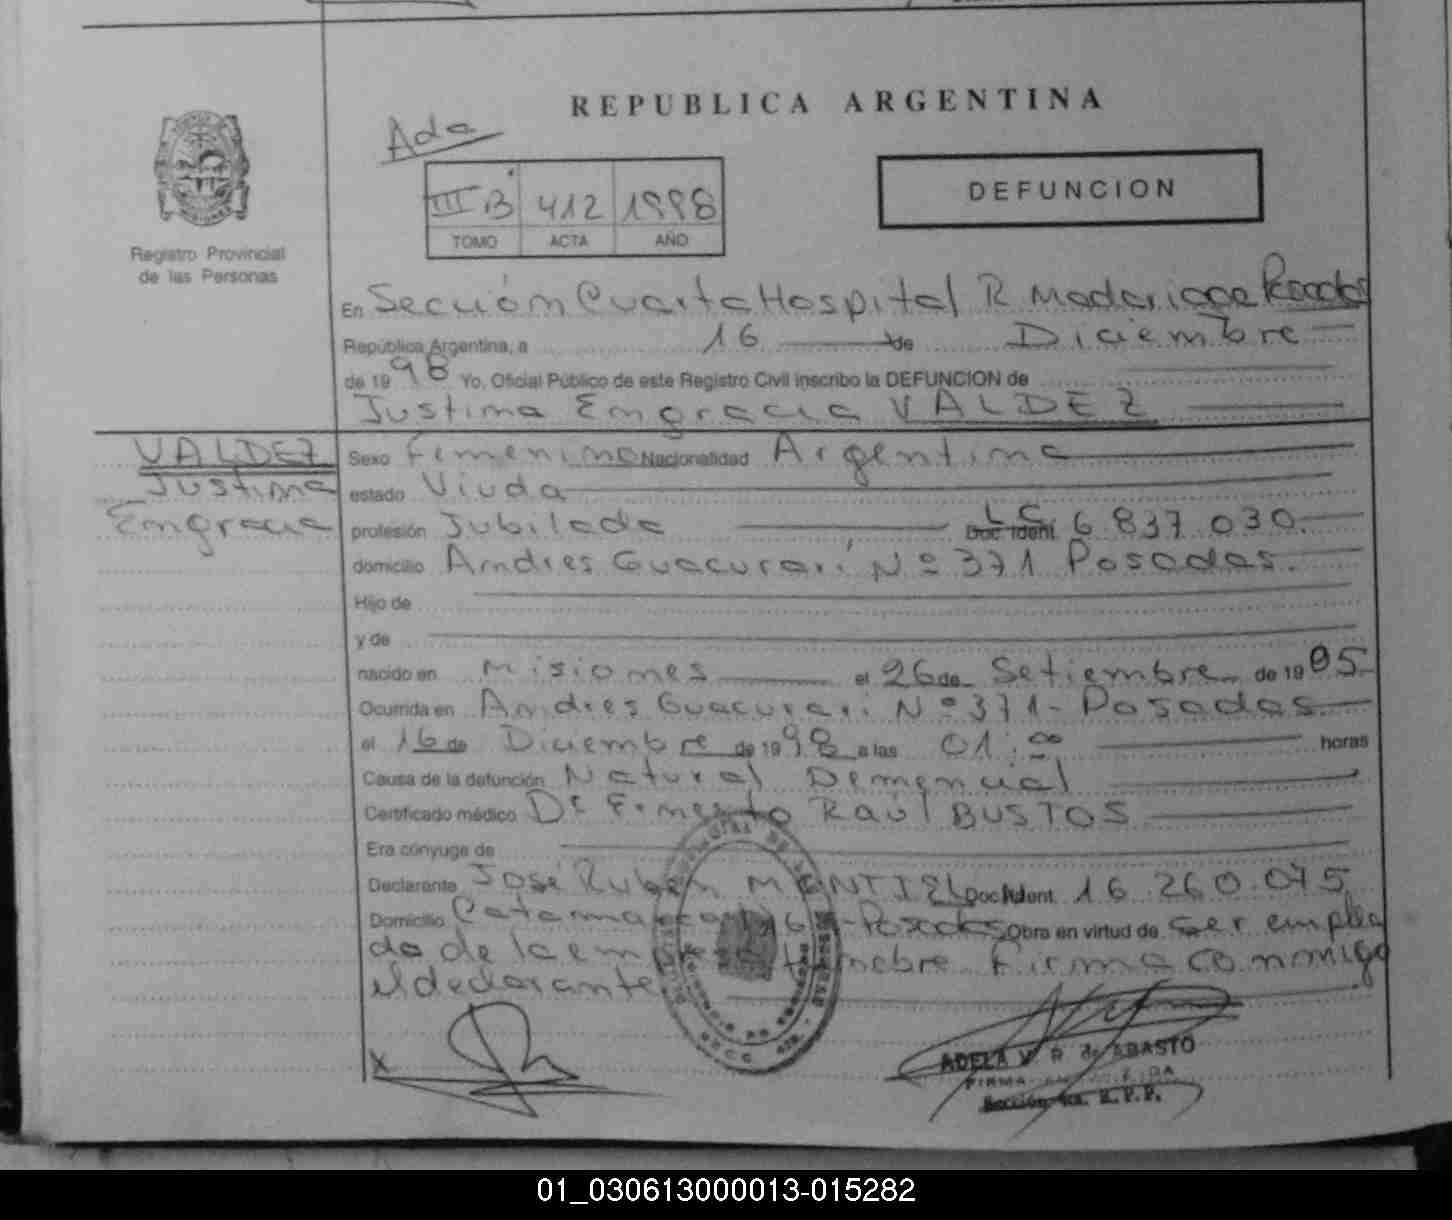 REPUBLICA ARGENTINA
Ada
III B 412 1998
TOMO ACTA AÑO
DEFUNCION
Registro Provincial
de las Personas
En Sección Cuarta Hospital R Madariaga Posadas
República Argentina, a 16 de Diciembre
de 1998 Yo, Oficial Público de este Registro Civil inscribo la DEFUNCION de
Justina Engracia VALDEZ
VALDEZ
Justina
Engracia
Sexo Femenino Nacionalidad Argentina
estado Viuda
profesión Jubilada L C Doc Ident. 6 837 030
domicilio Andres Guacurarí Nº 371 Posadas.
Hijo de
y de
nacido en Misiones el 26 de Setiembre de 1905
Ocurrida en Andres Guacurari Nº 371 - Posadas
el 16 de Diciembre de 1998 a las 01:00 horas
Causa de la defunción Natural Demencial
Certificado médico Dr Ernesto Raúl BUSTOS
Era cónyuge de
Declarante José Ruben MONTIEL Doc Ident. 16 260 075
Domicilio Catamarca - Posadas Obra en virtud de ser emplea
do de la Firma conmigo
el declarante
X
ADELA V. R de ABASTO
FIRMA
Sección 4ta. R.P.P.
01_030613000013-015282